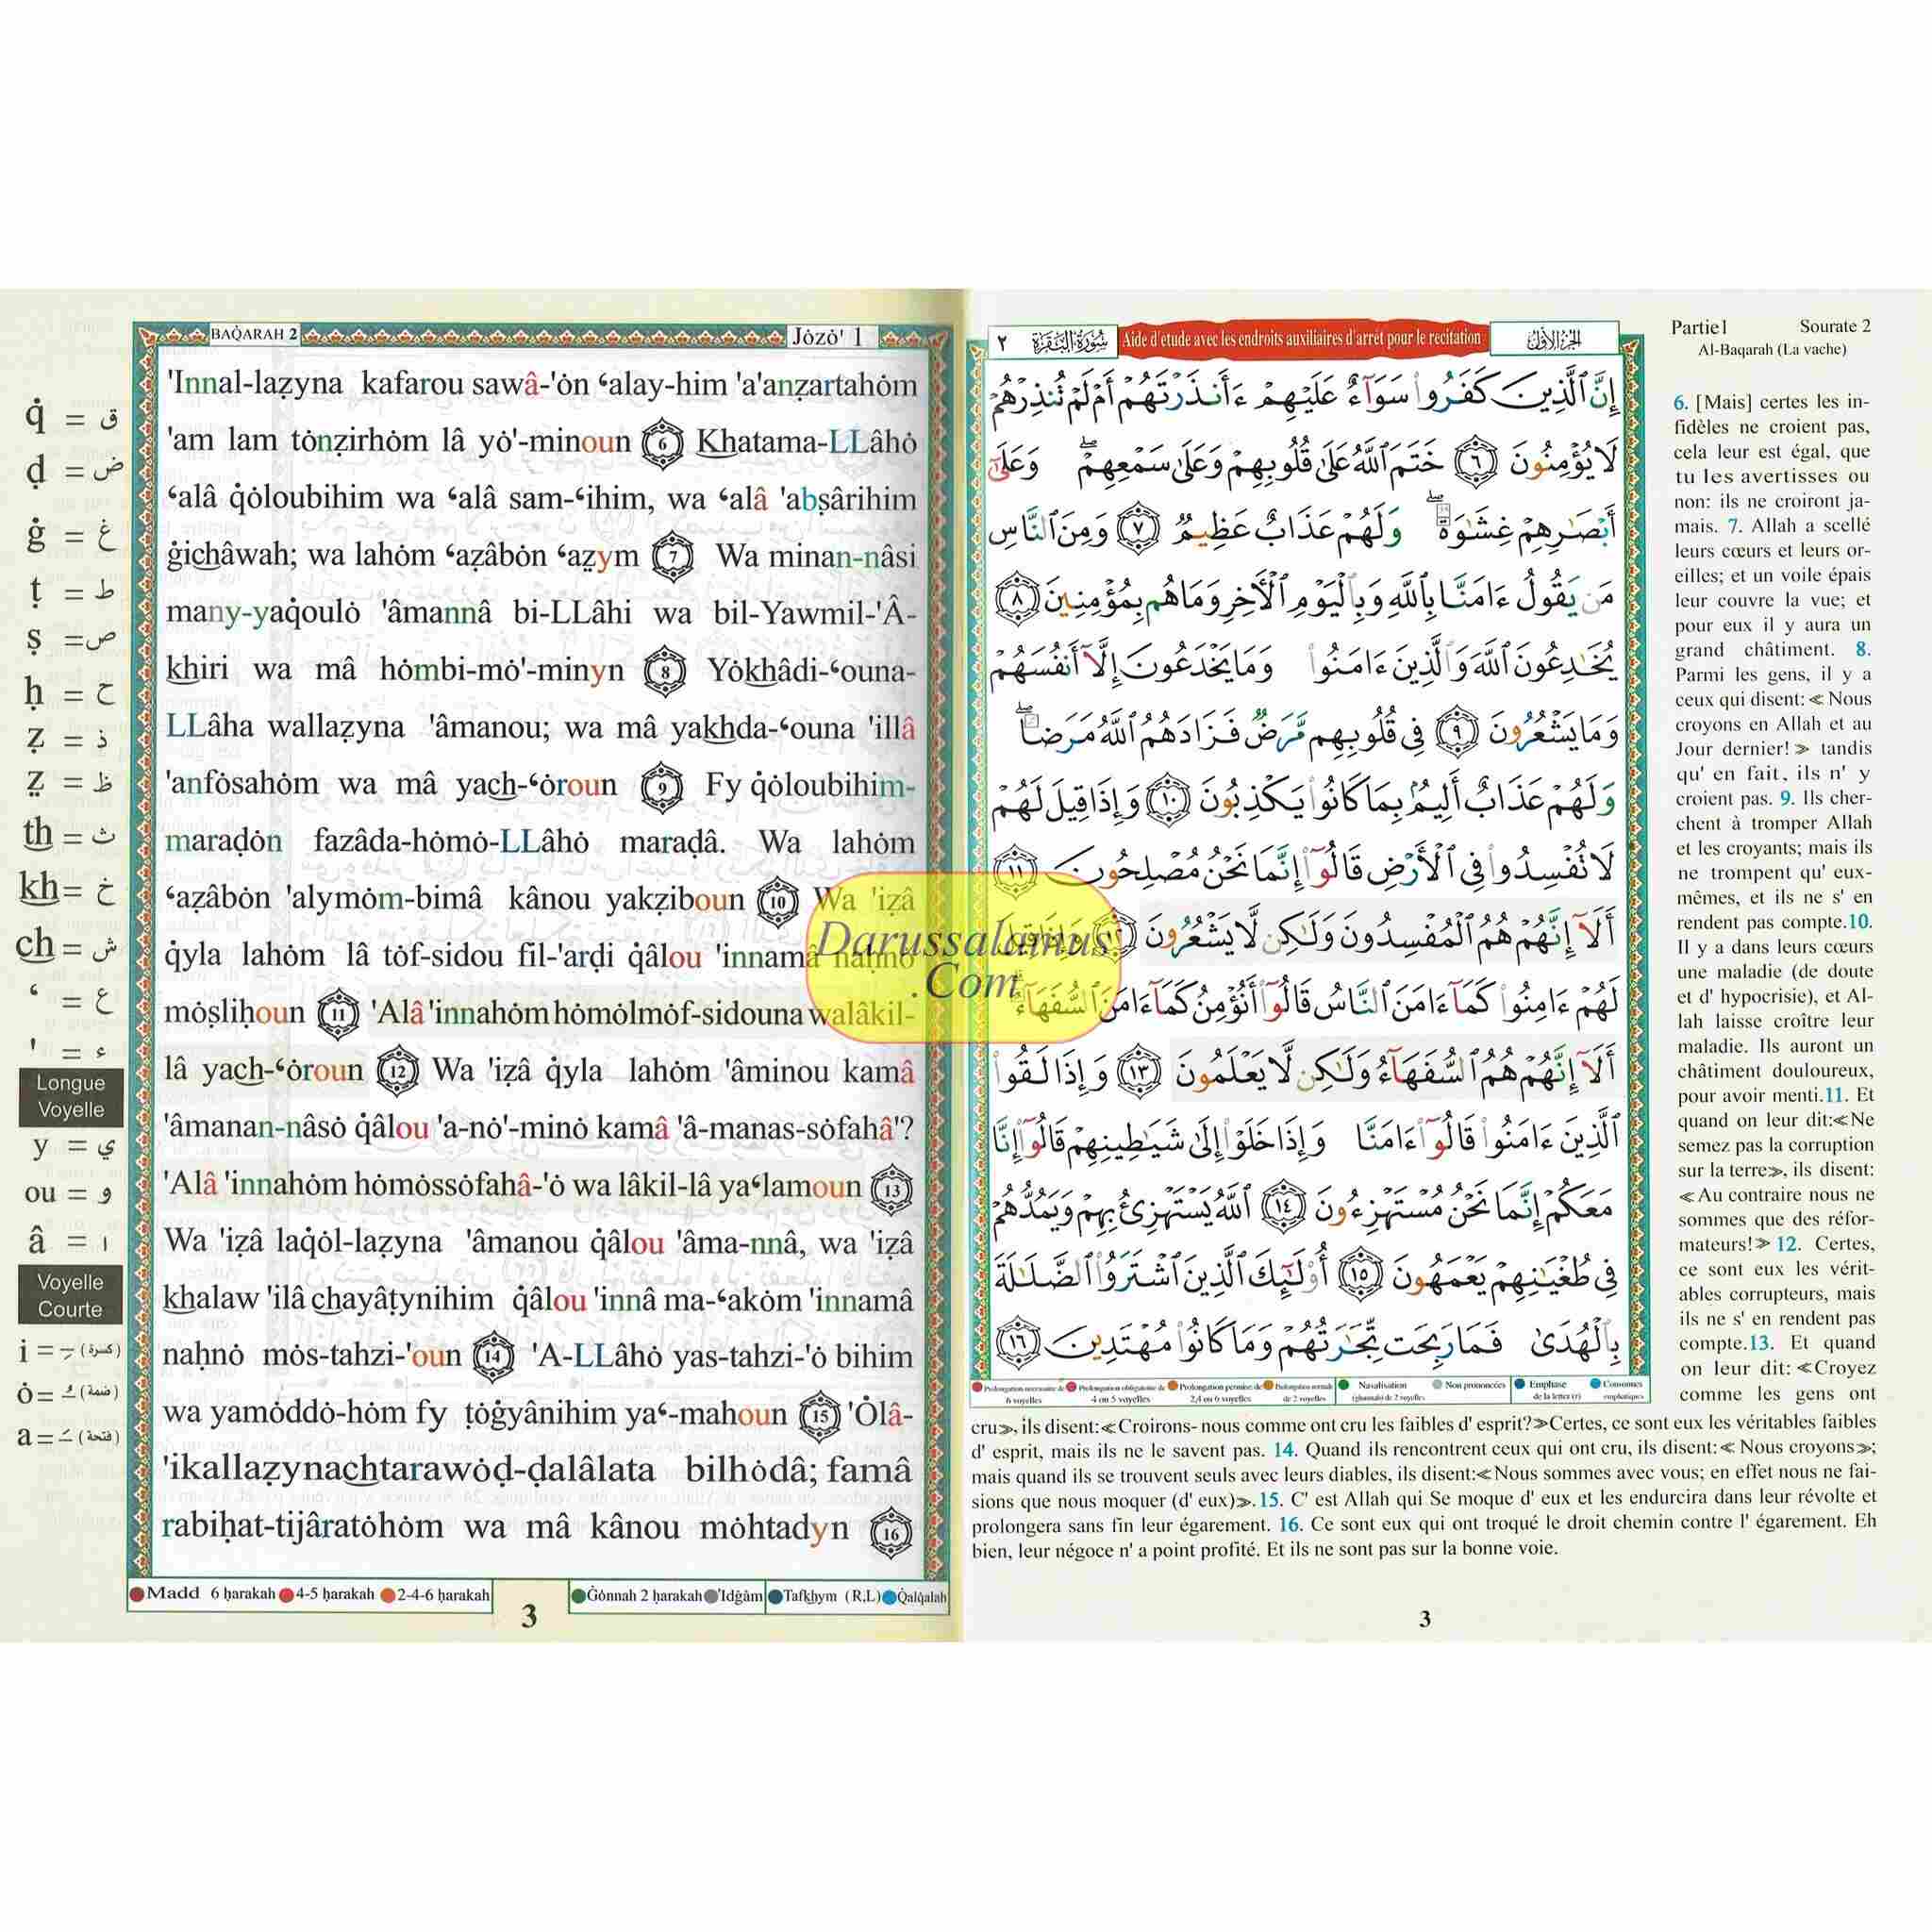 BAQ̇ARAH 2
Jȯzȯ' 1
'Innal-laẓyna kafarou sawâ-'ȯn ʻalay-him 'a'anẓartahȯm
'am lam tȯnẓirhȯm lâ yȯ'-minoun 6 Khatama-LLâhȯ
ʻalâ q̇ȯloubihim wa ʻalâ sam-ʻihim, wa ʻalâ 'abṣârihim
ġichâwah; wa lahȯm ʻaẓâbȯn ʻaẓym 7 Wa minan-nâsi
many-yaq̇oulȯ 'âmannâ bi-LLâhi wa bil-Yawmil-'Â-
khiri wa mâ hȯmbi-mȯ'-minyn 8 Yȯkhâdi-ʻouna-
LLâha wallaẓyna 'âmanou; wa mâ yakhda-ʻouna 'illâ
'anfȯsahȯm wa mâ yach-ʻȯroun 9 Fy q̇ȯloubihim-
maraḍȯn fazâda-hȯmȯ-LLâhȯ maraḍâ. Wa lahȯm
ʻaẓâbȯn 'alymȯm-bimâ kânou yakẓiboun 10 Wa 'iẓâ
q̇yla lahȯm lâ tȯf-sidou fil-'arḍi q̇âlou 'innamâ naḥnȯ
mȯṣliḥoun 11 'Alâ 'innahȯm hȯmȯlmȯf-sidouna walâkil-
lâ yach-ʻȯroun 12 Wa 'iẓâ q̇yla lahȯm 'âminou kamâ
'âmanan-nâsȯ q̇âlou 'a-nȯ'-minȯ kamâ 'â-manas-sȯfahâ'?
'Alâ 'innahȯm hȯmȯssȯfahâ-'ȯ wa lâkil-lâ yaʻlamoun 13
Wa 'iẓâ laq̇ȯl-laẓyna 'âmanou q̇âlou 'âma-nnâ, wa 'iẓâ
khalaw 'ilâ chayâṭynihim q̇âlou 'innâ ma-ʻakȯm 'innamâ
naḥnȯ mȯs-tahzi-'oun 14 'A-LLâhȯ yas-tahzi-'ȯ bihim
wa yamȯddȯ-hȯm fy ṭȯġyânihim yaʻ-mahoun 15 'Ȯlâ-
'ikallaẓynachtarawȯḍ-ḍalâlata bilhȯdâ; famâ
rabiḥat-tijâratȯhȯm wa mâ kânou mȯhtadyn 16
q̇ = ق
ḍ = ض
ġ = غ
ṭ = ط
ṣ = ص
ḥ = ح
ẓ = ذ
ẓ = ظ
th = ث
kh = خ
ch = ش
ʻ = ع
' = ء
Longue
Voyelle
y = ي
ou = و
â = ا
Voyelle
Courte
i = ـِ (كسرة)
ȯ = ـُ (ضمة)
a = ـَ (فتحة)
Madd 6 ḥarakah 4-5 ḥarakah 2-4-6 ḥarakah
3
Ġȯnnah 2 ḥarakah 'Idġâm Tafkhym (R,L) Q̇alq̇alah
٢ سُورَةُ البَقَرَة
Aide d'etude avec les endroits auxiliaires d'arret pour le recitation
الجزء الأول
إِنَّ ٱلَّذِينَ كَفَرُوا۟ سَوَآءٌ عَلَيْهِمْ ءَأَنذَرْتَهُمْ أَمْ لَمْ تُنذِرْهُمْ
لَا يُؤْمِنُونَ ٦ خَتَمَ ٱللَّهُ عَلَىٰ قُلُوبِهِمْ وَعَلَىٰ سَمْعِهِمْ ۖ وَعَلَىٰٓ
أَبْصَـٰرِهِمْ غِشَـٰوَةٌ ۖ وَلَهُمْ عَذَابٌ عَظِيمٌ ٧ وَمِنَ ٱلنَّاسِ
مَن يَقُولُ ءَامَنَّا بِٱللَّهِ وَبِٱلْيَوْمِ ٱلْـَٔاخِرِ وَمَا هُم بِمُؤْمِنِينَ ٨
يُخَـٰدِعُونَ ٱللَّهَ وَٱلَّذِينَ ءَامَنُوا۟ وَمَا يَخْدَعُونَ إِلَّآ أَنفُسَهُمْ
وَمَا يَشْعُرُونَ ٩ فِى قُلُوبِهِم مَّرَضٌ فَزَادَهُمُ ٱللَّهُ مَرَضًا ۖ
وَلَهُمْ عَذَابٌ أَلِيمٌۢ بِمَا كَانُوا۟ يَكْذِبُونَ ١٠ وَإِذَا قِيلَ لَهُمْ
لَا تُفْسِدُوا۟ فِى ٱلْأَرْضِ قَالُوٓا۟ إِنَّمَا نَحْنُ مُصْلِحُونَ ١١
أَلَآ إِنَّهُمْ هُمُ ٱلْمُفْسِدُونَ وَلَـٰكِن لَّا يَشْعُرُونَ ١٢ وَإِذَا قِيلَ
لَهُمْ ءَامِنُوا۟ كَمَآ ءَامَنَ ٱلنَّاسُ قَالُوٓا۟ أَنُؤْمِنُ كَمَآ ءَامَنَ ٱلسُّفَهَآءُ ۗ
أَلَآ إِنَّهُمْ هُمُ ٱلسُّفَهَآءُ وَلَـٰكِن لَّا يَعْلَمُونَ ١٣ وَإِذَا لَقُوا۟
ٱلَّذِينَ ءَامَنُوا۟ قَالُوٓا۟ ءَامَنَّا وَإِذَا خَلَوْا۟ إِلَىٰ شَيَـٰطِينِهِمْ قَالُوٓا۟ إِنَّا
مَعَكُمْ إِنَّمَا نَحْنُ مُسْتَهْزِءُونَ ١٤ ٱللَّهُ يَسْتَهْزِئُ بِهِمْ وَيَمُدُّهُمْ
فِى طُغْيَـٰنِهِمْ يَعْمَهُونَ ١٥ أُو۟لَـٰٓئِكَ ٱلَّذِينَ ٱشْتَرَوُا۟ ٱلضَّلَـٰلَةَ
بِٱلْهُدَىٰ فَمَا رَبِحَت تِّجَـٰرَتُهُمْ وَمَا كَانُوا۟ مُهْتَدِينَ ١٦
Prolongation nécessaire de 6 voyelles Prolongation obligatoire de 4 ou 5 voyelles Prolongation permise de 2,4 ou 6 voyelles Prolongation normale de 2 voyelles Nasalisation (ghunnah) de 2 voyelles Non prononcées Emphase de la lettre (r) Consonnes emphatiques
Partie1 Sourate 2
Al-Baqarah (La vache)
6. [Mais] certes les in-
fidèles ne croient pas,
cela leur est égal, que
tu les avertisses ou
non: ils ne croiront ja-
mais. 7. Allah a scellé
leurs cœurs et leurs or-
eilles; et un voile épais
leur couvre la vue; et
pour eux il y aura un
grand châtiment. 8.
Parmi les gens, il y a
ceux qui disent:≪ Nous
croyons en Allah et au
Jour dernier!≫ tandis
qu' en fait, ils n' y
croient pas. 9. Ils cher-
chent à tromper Allah
et les croyants; mais ils
ne trompent qu' eux-
mêmes, et ils ne s' en
rendent pas compte.10.
Il y a dans leurs cœurs
une maladie (de doute
et d' hypocrisie), et Al-
lah laisse croître leur
maladie. Ils auront un
châtiment douloureux,
pour avoir menti.11. Et
quand on leur dit:≪Ne
semez pas la corruption
sur la terre≫, ils disent:
≪Au contraire nous ne
sommes que des réfor-
mateurs!≫ 12. Certes,
ce sont eux les vérit-
ables corrupteurs, mais
ils ne s' en rendent pas
compte.13. Et quand
on leur dit: ≪Croyez
comme les gens ont
cru≫, ils disent:≪Croirons- nous comme ont cru les faibles d' esprit?≫Certes, ce sont eux les véritables faibles
d' esprit, mais ils ne le savent pas. 14. Quand ils rencontrent ceux qui ont cru, ils disent:≪ Nous croyons≫;
mais quand ils se trouvent seuls avec leurs diables, ils disent:≪Nous sommes avec vous; en effet nous ne fai-
sions que nous moquer (d' eux)≫.15. C' est Allah qui Se moque d' eux et les endurcira dans leur révolte et
prolongera sans fin leur égarement. 16. Ce sont eux qui ont troqué le droit chemin contre l' égarement. Eh
bien, leur négoce n' a point profité. Et ils ne sont pas sur la bonne voie.
3
Darussalamus
.Com